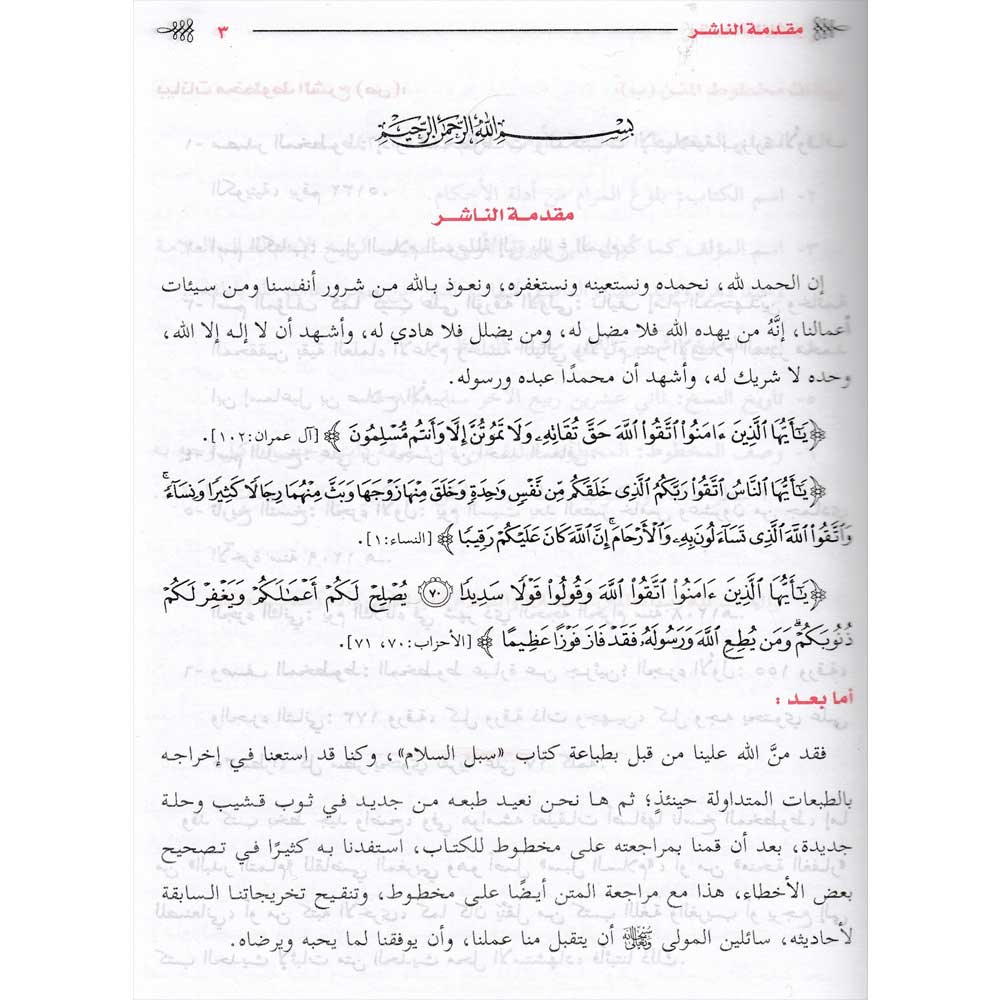 مقدمة الناشر ٣
بسم الله الرحمن الرحيم
مقدمة الناشر
إن الحمد لله، نحمده ونستعينه ونستغفره، ونعوذ بالله من شرور أنفسنا ومن سيئات
أعمالنا، إنَّهُ من يهده الله فلا مضل له، ومن يضلل فلا هادي له، وأشهد أن لا إله إلا الله،
وحده لا شريك له، وأشهد أن محمدًا عبده ورسوله.
﴿يَٰٓأَيُّهَا ٱلَّذِينَ ءَامَنُوا۟ ٱتَّقُوا۟ ٱللَّهَ حَقَّ تُقَاتِهِۦ وَلَا تَمُوتُنَّ إِلَّا وَأَنتُم مُّسْلِمُونَ﴾ [آل عمران:١٠٢].
﴿يَٰٓأَيُّهَا ٱلنَّاسُ ٱتَّقُوا۟ رَبَّكُمُ ٱلَّذِى خَلَقَكُم مِّن نَّفْسٍ وَٰحِدَةٍ وَخَلَقَ مِنْهَا زَوْجَهَا وَبَثَّ مِنْهُمَا رِجَالًا كَثِيرًا وَنِسَآءً ۚ
وَٱتَّقُوا۟ ٱللَّهَ ٱلَّذِى تَسَآءَلُونَ بِهِۦ وَٱلْأَرْحَامَ ۚ إِنَّ ٱللَّهَ كَانَ عَلَيْكُمْ رَقِيبًا﴾ [النساء:١].
﴿يَٰٓأَيُّهَا ٱلَّذِينَ ءَامَنُوا۟ ٱتَّقُوا۟ ٱللَّهَ وَقُولُوا۟ قَوْلًا سَدِيدًا ٧٠ يُصْلِحْ لَكُمْ أَعْمَٰلَكُمْ وَيَغْفِرْ لَكُمْ
ذُنُوبَكُمْ ۗ وَمَن يُطِعِ ٱللَّهَ وَرَسُولَهُۥ فَقَدْ فَازَ فَوْزًا عَظِيمًا﴾ [الأحزاب:٧٠، ٧١].
أما بعد:
فقد منَّ الله علينا من قبل بطباعة كتاب «سبل السلام»، وكنا قد استعنا في إخراجه
بالطبعات المتداولة حينئذٍ؛ ثم ها نحن نعيد طبعه من جديد في ثوب قشيب وحلة
جديدة، بعد أن قمنا بمراجعته على مخطوط للكتاب، استفدنا به كثيرًا في تصحيح
بعض الأخطاء، هذا مع مراجعة المتن أيضًا على مخطوط، وتنقيح تخريجاتنا السابقة
لأحاديثه، سائلين المولى سبحانه وتعالى أن يتقبل منا عملنا، وأن يوفقنا لما يحبه ويرضاه.